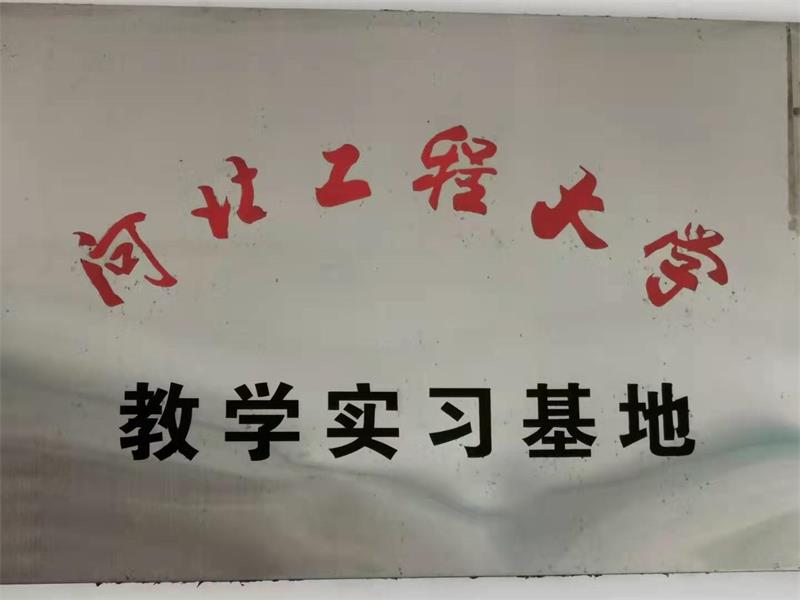 河北工程大学
教学实习基地